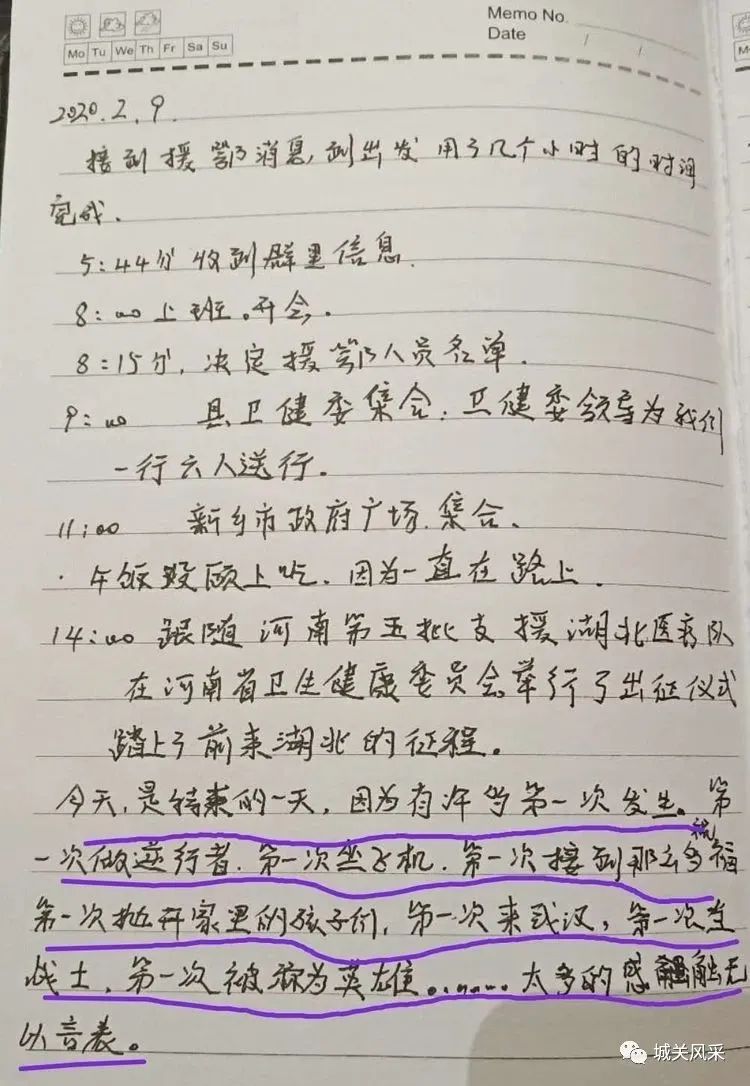 Memo No.
Date / /
Mo Tu We Th Fr Sa Su
2020.2.9.
接到援鄂消息,到出发用了几个小时的时间
完成.
5:44分收到群里信息.
8:00上班。开会.
8:15分,决定援鄂人员名单.
9:00 县卫健委集合.卫健委领导为我们
一行六人送行.
11:00 新乡市政府广场.集合.
·午饭没顾上吃.因为一直在路上.
14:00 跟随河南第五批支援湖北医疗队
在河南省卫生健康委员会举行了出征仪式
踏上了前来湖北的征程。
今天,是特殊的一天,因为有许多第一次发生。第
一次做逆行者.第一次坐飞机.第一次接到那么多祝福
第一次抛开家里的孩子们,第一次来武汉,第一次当
战士,第一次被称为英雄....... 太多的感触无
以言表。
城关风采